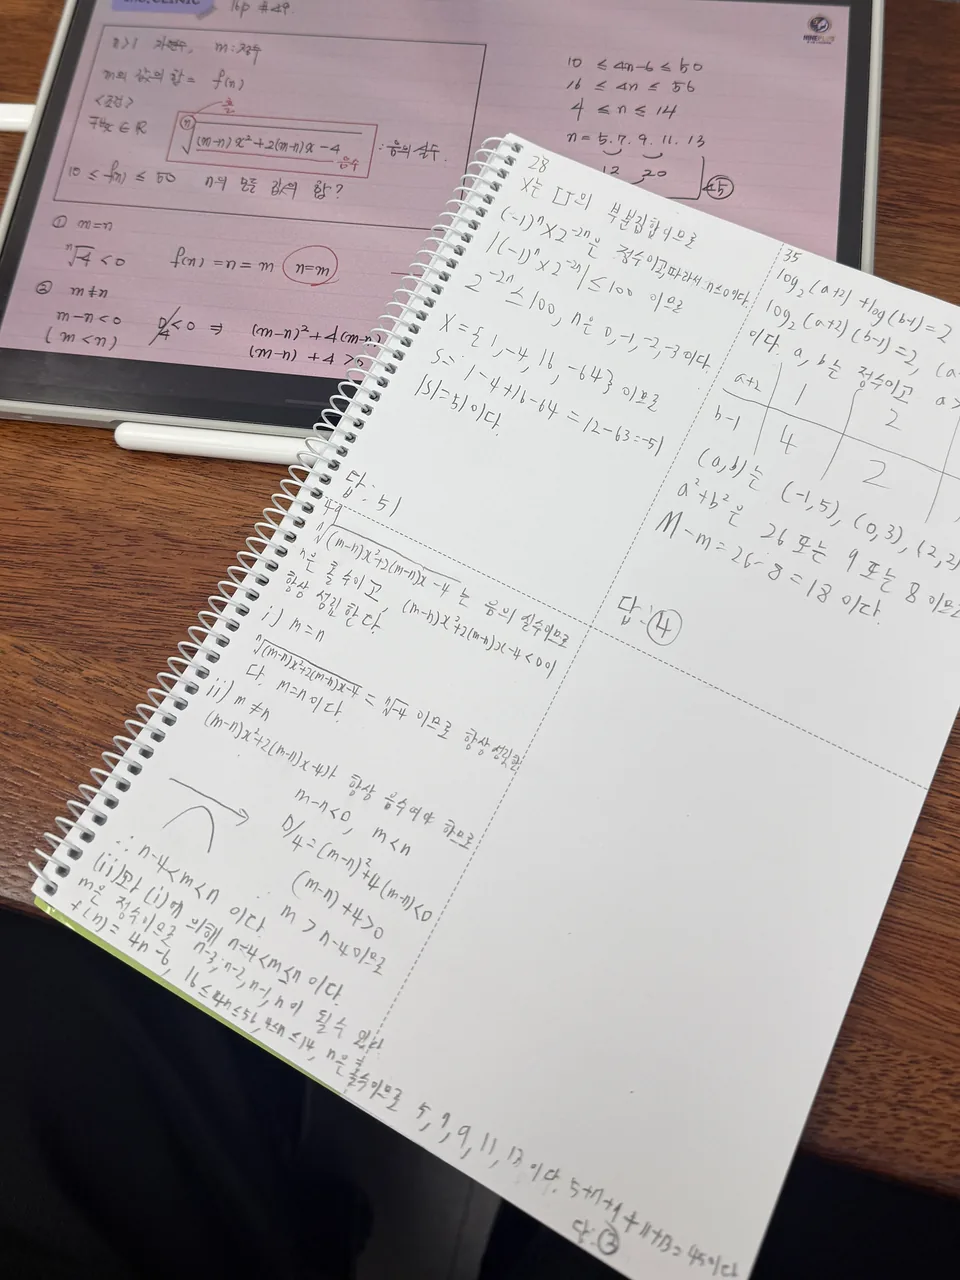 16p #49.
n>1 자연수, m:정수
m의 값의 합 = f(n)
<조건>
홀
ⁿ√(m-n)x²+2(m-n)x-4 : 음의 실수.
음수
10 ≤ f(n) ≤ 50 n의 모든 값의 합?
① m=n
ⁿ√-4 < 0 f(n)=n=m n=m
② m≠n
m-n<0 D/4<0 ⇒ (m-n)²+4(m-n)
(m<n) (m-n)+4>
10 ≤ 4n-6 ≤ 50
16 ≤ 4n ≤ 56
4 ≤ n ≤ 14
n = 5. 7. 9. 11. 13
12 20
45
28
X는 U의 부분집합이므로
(-1)ⁿ×2⁻²ⁿ은 정수이고, 따라서 n≤0이다.
|(-1)ⁿ×2⁻²ⁿ|≤100 이므로
2⁻²ⁿ≤100, n은 0,-1,-2,-3이다.
X={1,-4,16,-64} 이므로
S= 1-4+16-64 = 12-63=-51
|S|=51이다.
답: 51
35
log₂(a+2)+log(b-1)=2
log₂(a+2)(b-1)=2, (a
이다. a, b는 정수이고 a>
a+2 2
b-1 4 2
(a,b)는 (-1,5), (0,3), (2,2)
a²+b²은 26 또는 9 또는 8 이므
M-m=26-8=18 이다.
답: ④
49
ⁿ√(m-n)x²+2(m-n)x-4는 음의 실수이므로
n은 홀수이고, (m-n)x²+2(m-n)x-4<0이
항상 성립한다.
i) m=n
ⁿ√(m-n)x²+2(m-n)x-4 = ⁿ√-4 이므로 항상 성립한
다. m=n이다.
ii) m≠n
(m-n)x²+2(m-n)x-4가 항상 음수여야 하므로
m-n<0, m<n
D/4=(m-n)²+4(m-n)<0
(m-n)+4>0
m > n-4이므로
∴ n-4<m<n 이다.
(ii)와 (i)에 의해 n-4<m≤n 이다.
m은 정수이므로 n-3, n-2, n-1, n이 될 수 있다.
f(n)= 4n-6, 16≤4n≤56, 4≤n≤14, n은 홀수이므로 5, 7, 9, 11, 13 이다. 5+7+9+11+13=45이다
답:③